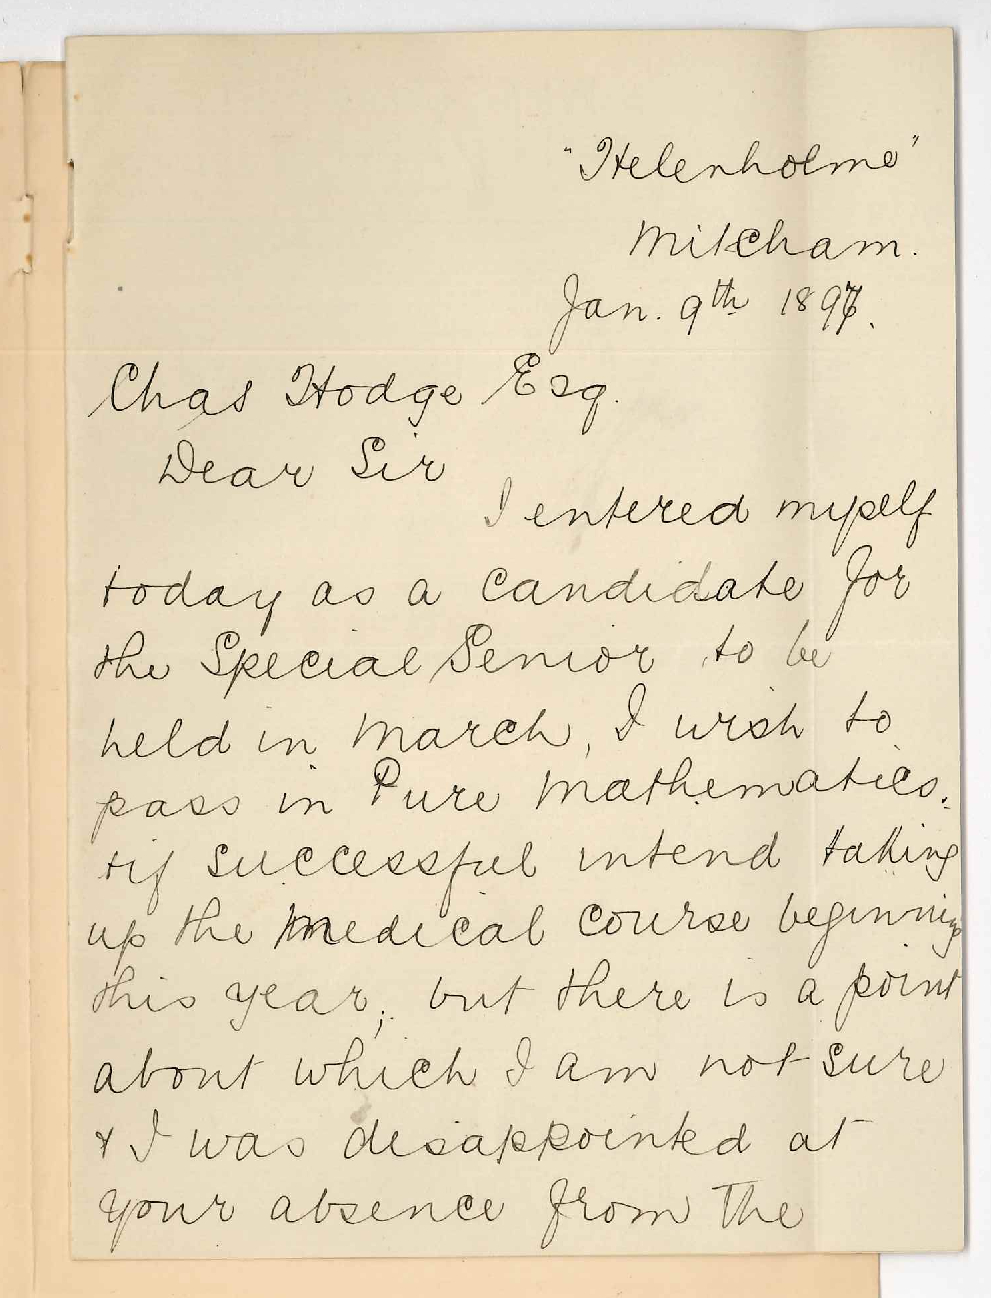 "Helenholme"
Mitcham.
Jan. 9th 1897.
Chas Hodge Esq.
Dear Sir
I entered myself
today as a candidate for
the Special Senior to be
held in March, I wish to
pass in Pure Mathematics.
& if successful intend taking
up the Medical course beginning
this year, but there is a point
about which I am not sure
& I was disappointed at
your absence from the